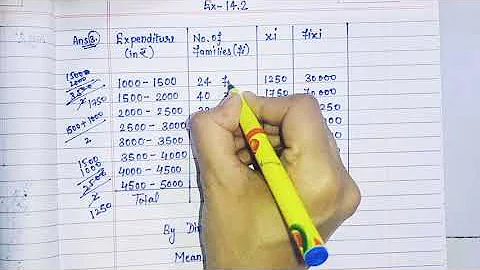 Ex-14.2
Ans③. Expenditure (in ₹) No. of families (fi) xi fixi
1000 - 1500 24 1250 30000
1500 - 2000 40 1750 70000
2000 - 2500 250
2500 - 3000
3000 - 3500
3500 - 4000
4000 - 4500
4500 - 5000
Total
By Di
Mean
1500
2000
3500
2
1750
1500 + 1000
2
1500
1000
2500
2
1250